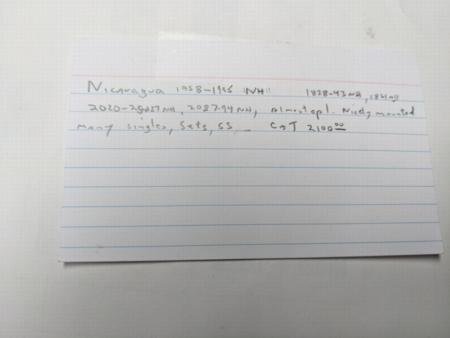 Nicaragua 1958-1986 NH 1828-43 NH,
2020-2027 NH, 2087-94 NH, Almost cpl. Nicely mounted
many singles, Sets, SS - CAT 2100.00